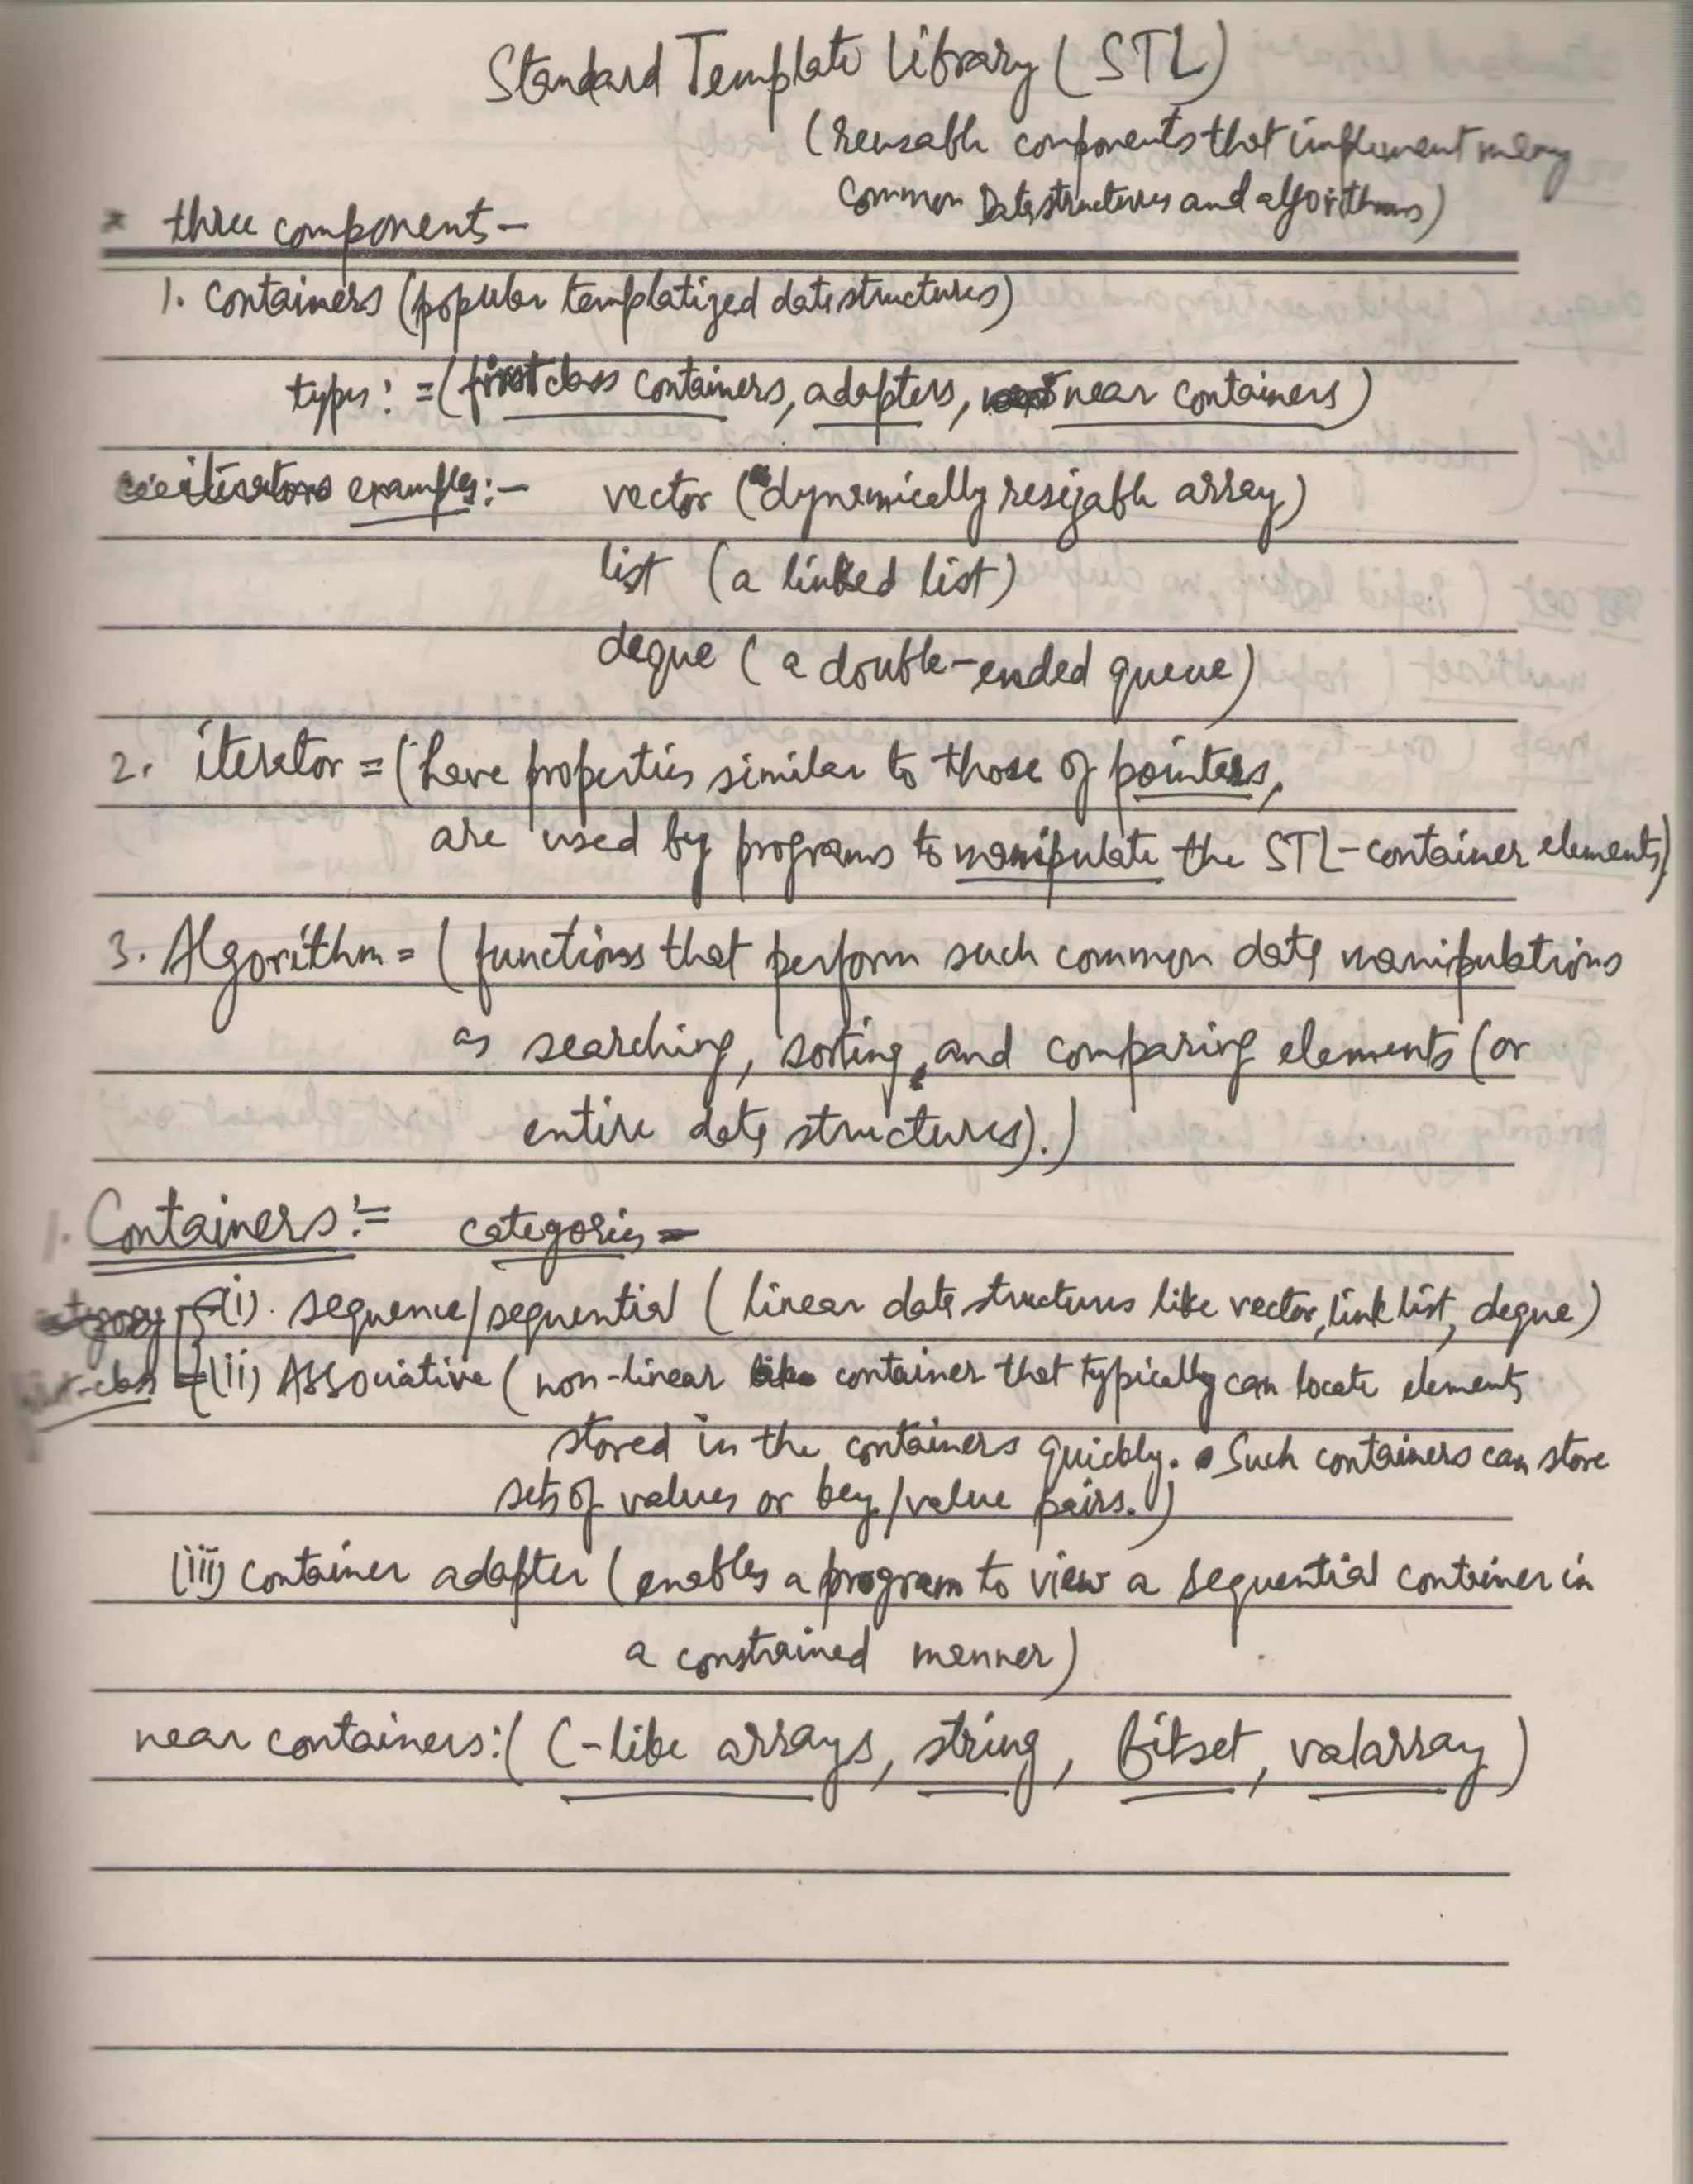 Standard Template Library (STL)
(reusable components that implement many
common Datastructures and algorithms)
* three components -
1. Containers (popular templatized datastructures)
types: = (first class containers, adapters, near containers)
examples:- vector (dynamically resizable array)
list (a linked list)
deque (a double-ended queue)
2. iterator = (have properties similar to those of pointers,
are used by programs to manipulate the STL-container elements)
3. Algorithm = (functions that perform such common data manipulations
as searching, sorting, and comparing elements (or
entire data structures).)
1. Containers:= categories =
(i). sequence/sequential (linear data structures like vector, link list, deque)
first-class = (ii) Associative (non-linear container that typically can locate elements
stored in the containers quickly. Such containers can store
sets of values or key/value pairs.)
(iii) container adapter (enables a program to view a sequential container in
a constrained manner)
near containers:( C-like arrays, string, bitset, valarray)